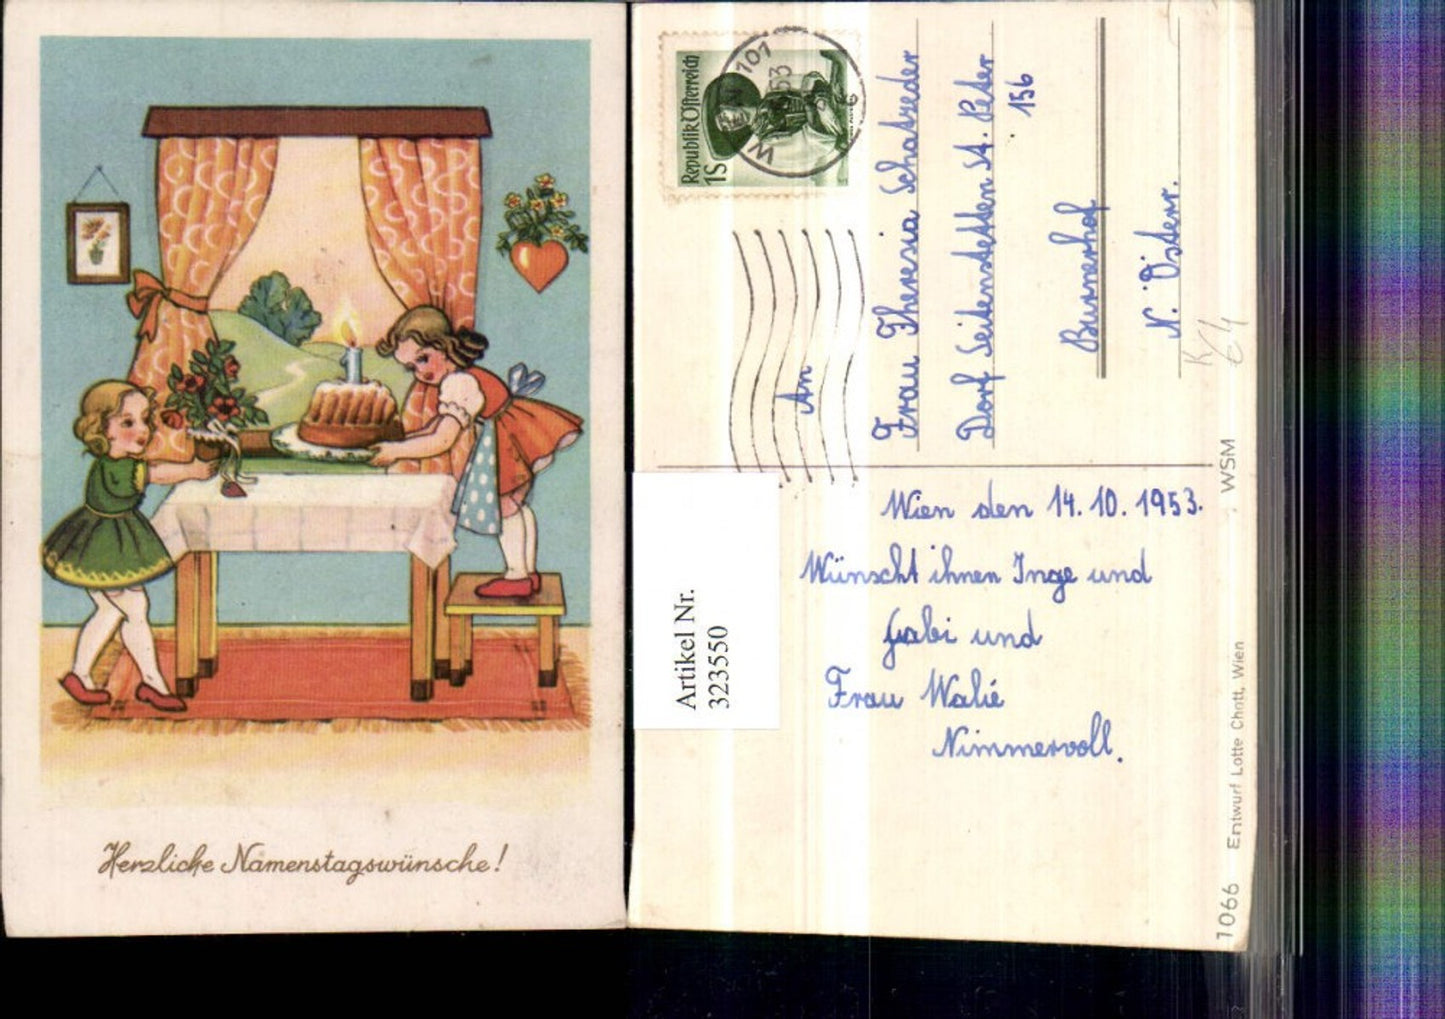 Herzliche Namenstagswünsche!
Republik Österreich
1S
101
53
An
Frau Theresia Schatzeder
Dorf Seitenstetten St. Peter
156
N. Österr.
Wien den 14.10.1953.
Wünscht ihnen Inge und
Gabi und
Frau Walié
Nimmervoll.
Artikel Nr.
323550
1066 Entwurf Lotte Chott, Wien WSM